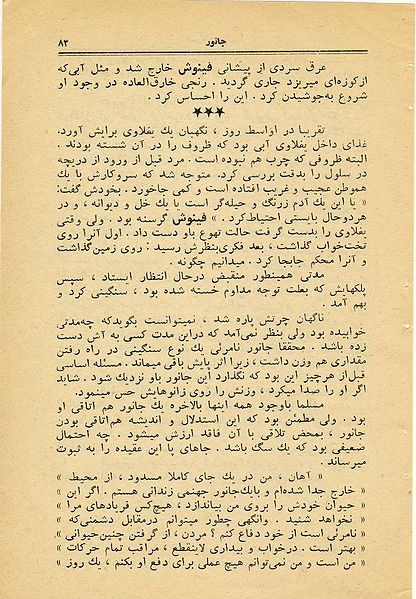 جانور ۸۳
عرق سردی از پیشانی فینوش خارج شد و مثل آبی‌که
از کوزه‌ای میریزد جاری گردید. رنجی خارق‌العاده در وجود او
شروع به‌جوشیدن کرد. این را احساس کرد.
★★★
تقریبا در اواسط روز، نگهبان یك بغلاوی برایش آورد.
غذای داخل بغلاوی آبی بود که ظروف را در آن شسته بودند.
البته ظروفی که چرب هم نبوده است. مرد قبل از ورود از دریچه
در سلول را بدقت بررسی کرد. متوجه شد که سروکارش با یك
هموطن عجیب و غریب افتاده است و کمی جاخورد. بخودش گفت:
« یا این یك آدم زرنگ و حیله‌گر است یا یك خل و دیوانه، و در
هردوحال بایستی احتیاط‌کرد. » فینوش گرسنه بود. ولی وقتی
بغلاوی را بدست گرفت حالت تهوع باو دست داد. اول آنرا روی
تخت‌خواب گذاشت، بعد فکری‌بنظرش رسید: روی زمین‌گذاشت
و آنرا محکم جابجا کرد. میدانیم چگونه.
مدتی همینطور منقبض درحال انتظار ایستاد، سپس
پلکهایش که بعلت توجه مداوم خسته شده بود، سنگینی کرد و
بهم آمد.
ناگهان چرتش پاره شد، نمیتوانست بگویدکه چه‌مدتی
خوابیده بود ولی بنظر نمی‌آمد که دراین مدت کسی به آش دست
زده باشد. محققا جانور نامرئی یك نوع سنگینی در راه رفتن
مقداری هم وزن داشت، زیرا اثر پایش باقی میماند. مسئله اساسی
قبل‌از هرچیز این بود که نگذارد این جانور باو نزدیك شود. شاید
اگر او را صدا میکرد، وزنش را روی زانوهایش حس مینمود.
مسلما باوجود همه اینها بالاخره یك جانور هم اتاقی او
بود. ولی مطمئن بود که این استدلال و اندیشه هم‌اتاقی بودن
جانور، بمحض تلاقی با آن فاقد ارزش میشود. چه احتمال
ضعیفی بود که یك سگ باشد. جاهای پا این عقیده را به ثبوت
میرساند.
« آهان، من در یك جای کاملا مسدود، از محیط »
« خارج جدا شده‌ام و بایك‌جانور جهنمی زندانی هستم. اگر این »
« حیوان خودش را بروی من بیاندازد، هیچ‌کس فریادهای مرا »
« نخواهد شنید. وانگهی چطور میتوانم درمقابل دشمنی‌که »
« نامرئی است از خود دفاع کنم؟ مردن، از گرفتن چنین‌حیوانی »
« بهتر است. درخواب و بیداری لاینقطع، مراقب تمام حرکات »
« من است و من نمی‌توانم هیچ عملی برای دفع او بکنم، یك روز »